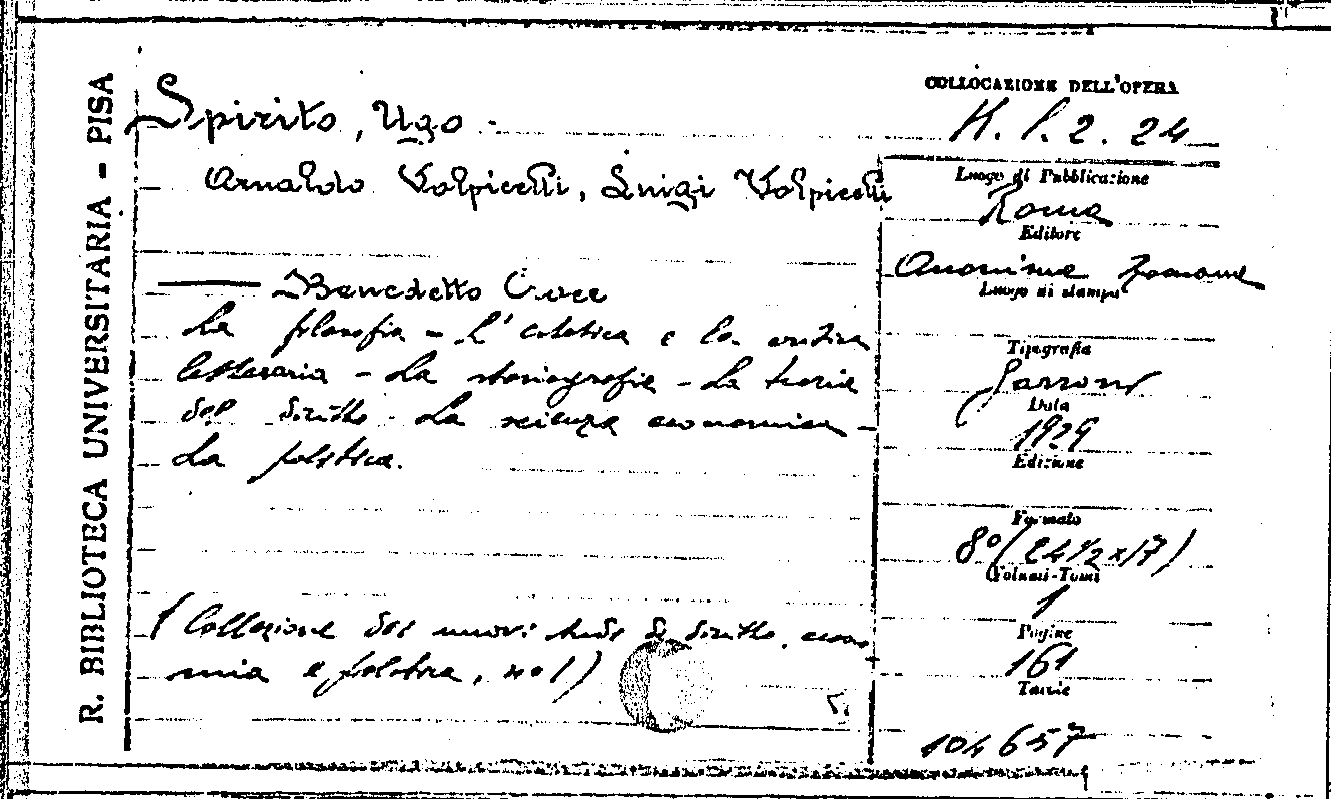 R. BIBLIOTECA UNIVERSITARIA - PISA
Spirito, Ugo -
Arnaldo Volpicelli, Luigi Volpicelli
Benedetto Croce
La filosofia - L'estetica e la critica
letteraria - La storiografia - La teoria
del diritto - La scienza economica -
La politica.
(Collezione dei nuovi studi di diritto, econo
mia e politica, no 1)
COLLOCAZIONE DELL'OPERA
K. l. 2. 24
Luogo di Pubblicazione
Roma
Editore
Anonima Romana
Luogo di stampa
Tipografia
Garroni
Data
1929
Edizione
Formato
8° (24 1/2 x 17)
Volumi-Tomi
1
Pagine
161
Tavole
104657